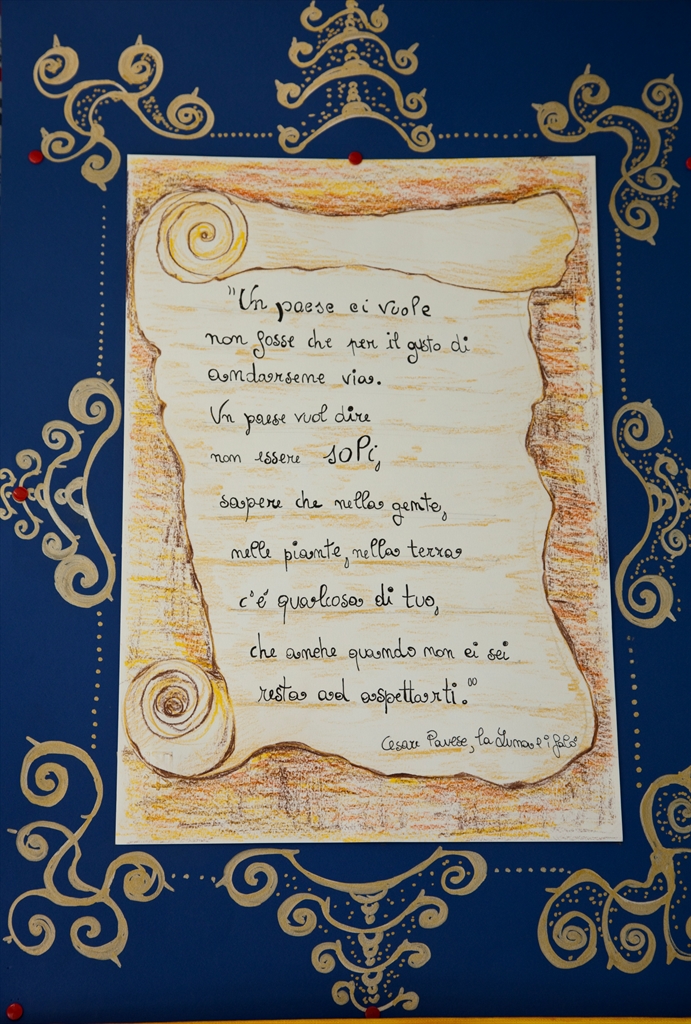 "Un paese ci vuole
non fosse che per il gusto di
andarsene via.
Un paese vuol dire
non essere soli,
sapere che nella gente,
nelle piante, nella terra
c'é qualcosa di tuo,
che anche quando non ci sei
resta ad aspettarti."
Cesare Pavese, la Luna e i falò